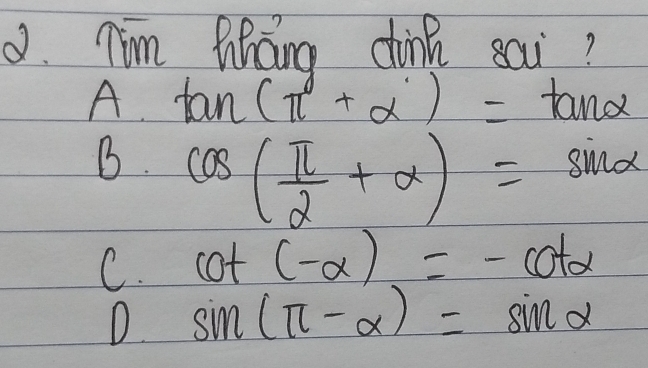 2. Tìm khẳng định sai ?
A. tan(π + α) = tanα
B. cos(π/2 + α) = sinα
C. cot (-α) = - cotα
D. sin(π - α) = sin α